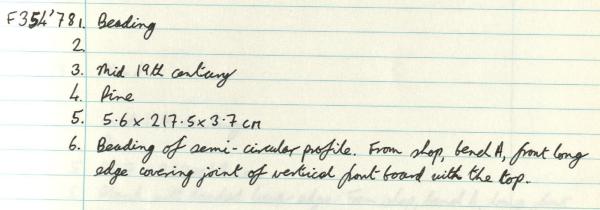 F354'78 1. Beading
2.
3. Mid 19th century
4. Pine
5. 5.6 x 217.5 x 3.7 cm
6. Beading of semi-circular profile. From shop, bench A, front long
edge covering joint of vertical front board with the top.